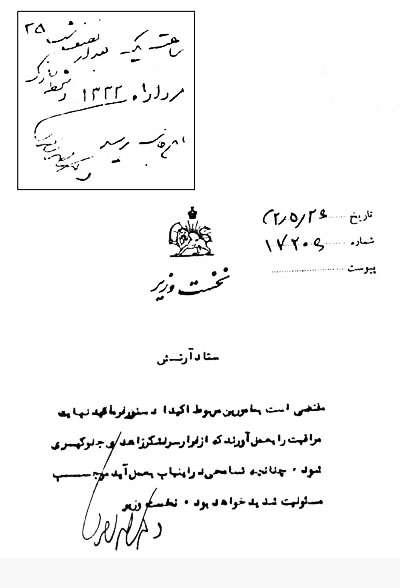 ساعت یک بعد از نصف شب ۲۵
مرداد ۱۳۳۲ دستخط مبارک
رسید
دکتر محمد مصدق
تاریخ
شماره
پیوست
نخست وزیر
ستاد آرتش
مقتضی است بمامورین مربوط اکیدا دستور فرمائید نهایت
مراقبت را بعمل آورند که از فرار سرلشکر زاهدی جلوگیری
شود ۰ چنانچه تسامحی در اینباب بعمل آید موجب
مسئولیت شدید خواهد بود ۰ نخست وزیر
دکتر محمد مصدق